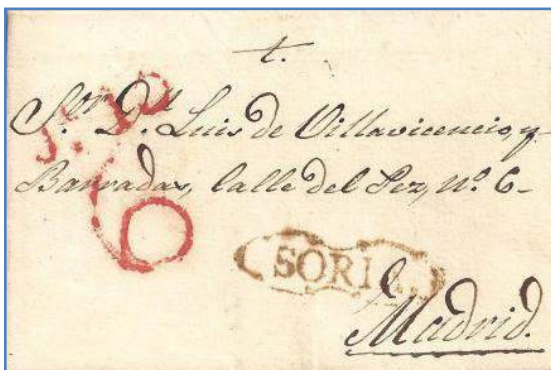 t.
Sor Dn Luis de Villavicencio, y
Barradas, Calle del Pez, No. 6-
6
SORIA
Madrid.